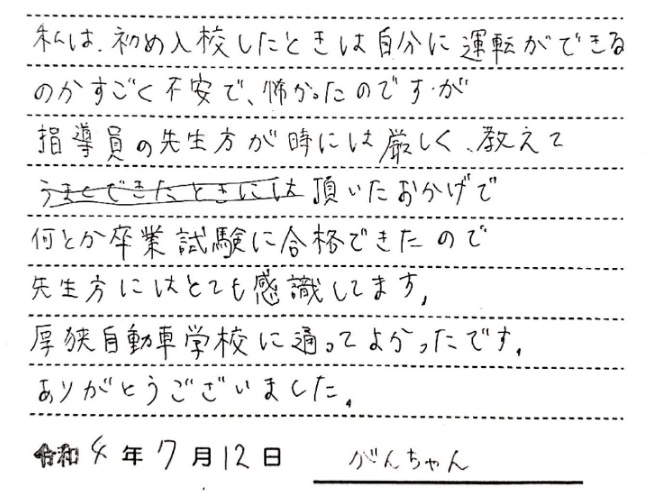 私は、初め入校したときは自分に運転ができる
のかすごく不安で、怖かったのですが
指導員の先生方が時には厳しく、教えて
うまくできたときには頂いたおかげで
何とか卒業試験に合格できたので
先生方にはとても感識してます。
厚狭自動車学校に通ってよかったです。
ありがとうございました。
令和4年7月12日 がんちゃん